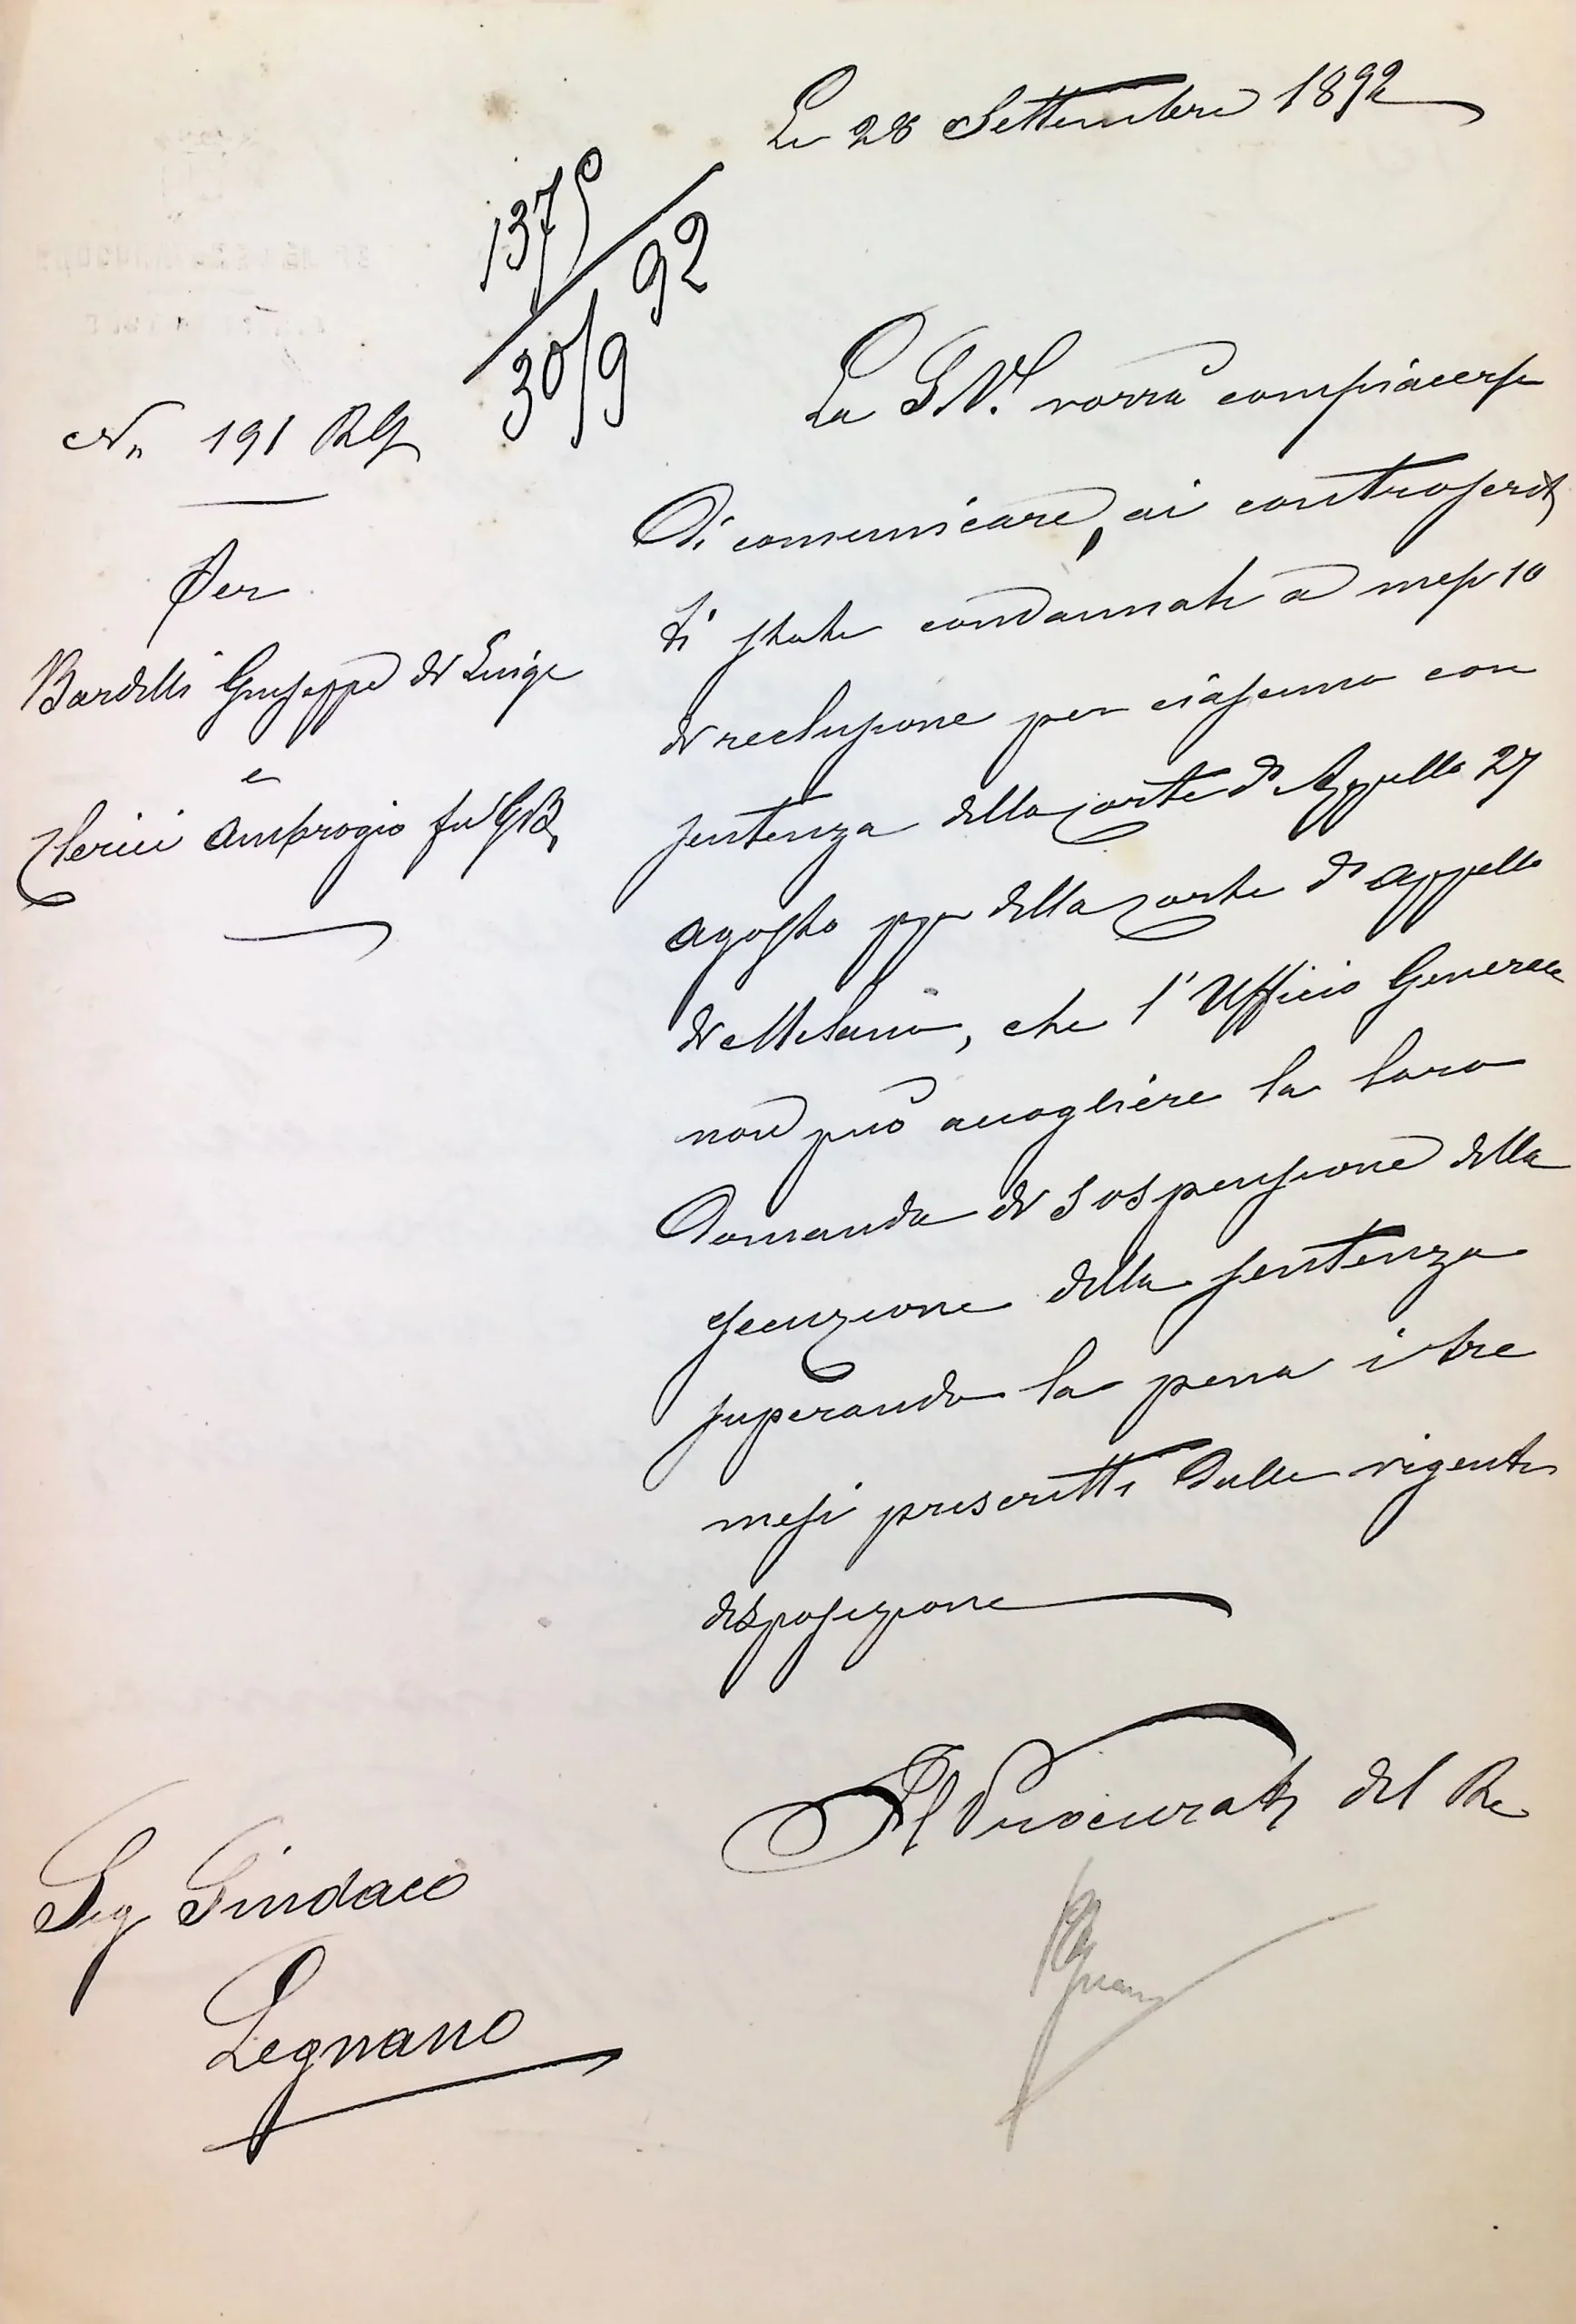 Li 28 Settembre 1892
1375/92
30/9
N. 191 RG
Per
Bardelli Giuseppe di Luigi
e
Clerici Ambrogio fu GB.
La S.V. vorrà compiacersi
di comunicare, ai controscrit
ti stati condannati a mesi 10
di reclusione per ciascuno con
sentenza della Corte d'Appello 27
agosto pp. della Corte d'Appello
di Milano, che l'Ufficio Generale
non può accogliere la loro
domanda di sospensione della
esecuzione della sentenza
superando la pena i tre
mesi prescritti dalle vigenti
disposizione
Il Procurat del Re
Sig Sindaco
Legnano